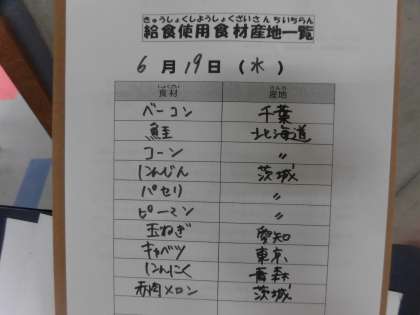 きゅうしょくしようしょくざいさんちいちらん
給食使用食材産地一覧
6月19日(水)
しょくざい さんち
食材 産地
ベーコン 千葉
鮭 北海道
コーン 〃
にんじん 茨城
パセリ 〃
ピーマン 〃
玉ねぎ 愛知
キャベツ 東京
にんにく 青森
赤肉メロン 茨城